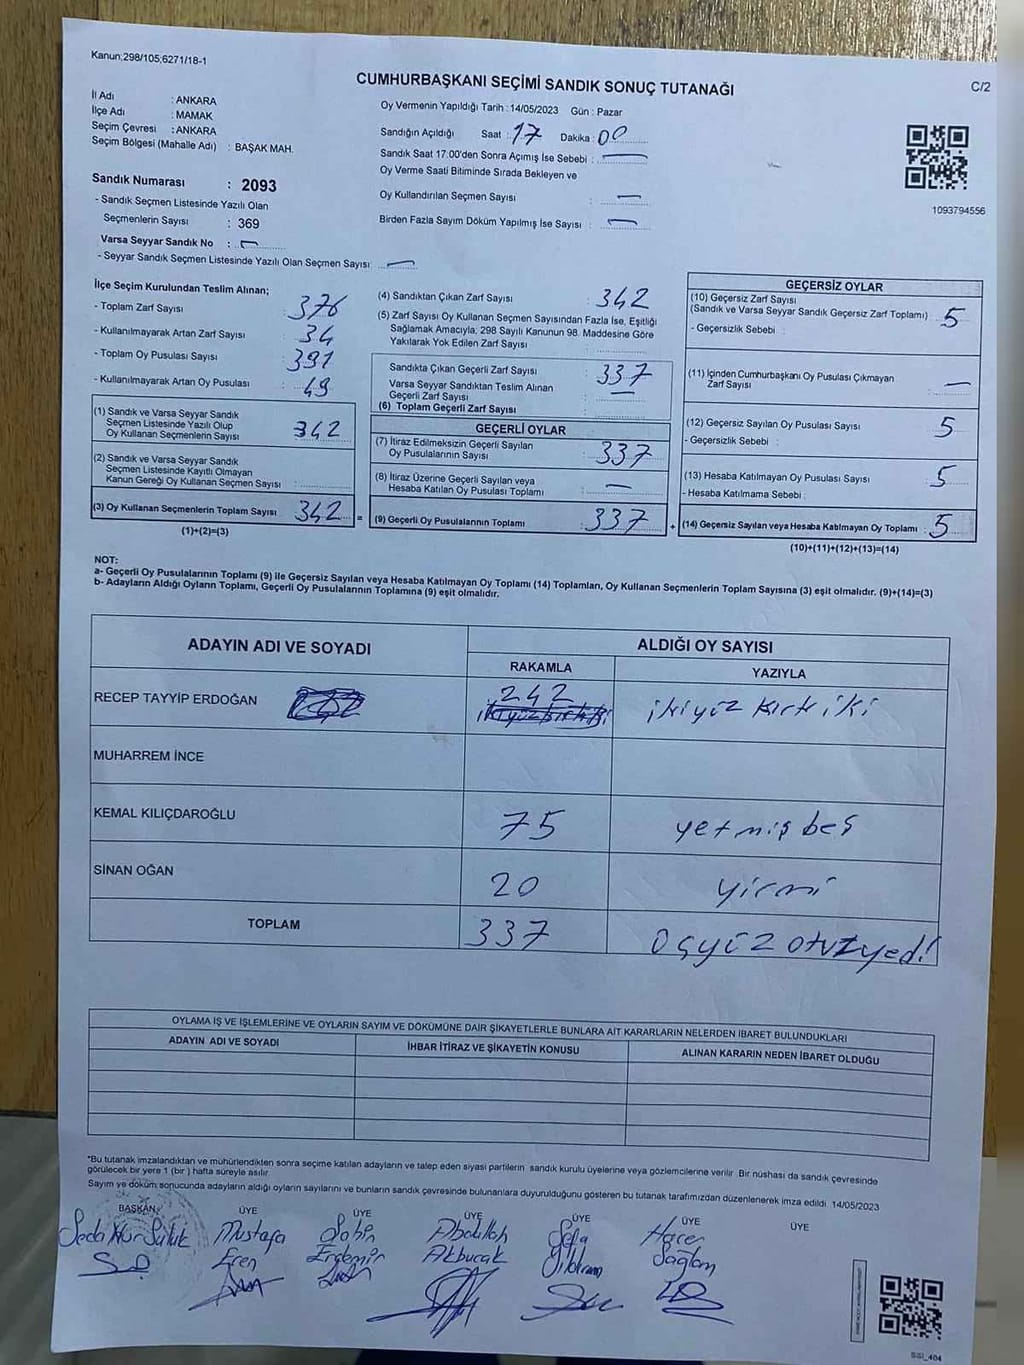 Kanun:298/105;6271/18-1
CUMHURBAŞKANI SEÇİMİ SANDIK SONUÇ TUTANAĞI
C/2
İl Adı : ANKARA
İlçe Adı : MAMAK
Seçim Çevresi : ANKARA
Seçim Bölgesi (Mahalle Adı) : BAŞAK MAH.
Sandık Numarası : 2093
- Sandık Seçmen Listesinde Yazılı Olan
Seçmenlerin Sayısı : 369
Varsa Seyyar Sandık No : —
- Seyyar Sandık Seçmen Listesinde Yazılı Olan Seçmen Sayısı: —
Oy Vermenin Yapıldığı Tarih : 14/05/2023 Gün : Pazar
Sandığın Açıldığı Saat : 17 Dakika : 00
Sandık Saat 17:00'den Sonra Açımış İse Sebebi : —
Oy Verme Saati Bitiminde Sırada Bekleyen ve
Oy Kullandırılan Seçmen Sayısı : —
Birden Fazla Sayım Döküm Yapılmış İse Sayısı : —
1093794556
İlçe Seçim Kurulundan Teslim Alınan;
- Toplam Zarf Sayısı : 376
- Kullanılmayarak Artan Zarf Sayısı : 34
- Toplam Oy Pusulası Sayısı : 391
- Kullanılmayarak Artan Oy Pusulası : 49
(1) Sandık ve Varsa Seyyar Sandık
Seçmen Listesinde Yazılı Olup
Oy Kullanan Seçmenlerin Sayısı 342
(2) Sandık ve Varsa Seyyar Sandık
Seçmen Listesinde Kayıtlı Olmayan
Kanun Gereği Oy Kullanan Seçmen Sayısı :
(3) Oy Kullanan Seçmenlerin Toplam Sayısı 342 =
(1)+(2)=(3)
(4) Sandıktan Çıkan Zarf Sayısı : 342
(5) Zarf Sayısı Oy Kullanan Seçmen Sayısından Fazla İse, Eşitliği
Sağlamak Amacıyla; 298 Sayılı Kanunun 98. Maddesine Göre
Yakılarak Yok Edilen Zarf Sayısı :
Sandıkta Çıkan Geçerli Zarf Sayısı : 337
Varsa Seyyar Sandıktan Teslim Alınan
Geçerli Zarf Sayısı : —
(6) Toplam Geçerli Zarf Sayısı :
GEÇERLİ OYLAR
(7) İtiraz Edilmeksizin Geçerli Sayılan
Oy Pusulalarının Sayısı : 337
(8) İtiraz Üzerine Geçerli Sayılan veya
Hesaba Katılan Oy Pusulası Toplamı : —
(9) Geçerli Oy Pusulalarının Toplamı : 337 +
GEÇERSİZ OYLAR
(10) Geçersiz Zarf Sayısı
(Sandık ve Varsa Seyyar Sandık Geçersiz Zarf Toplamı) : 5
- Geçersizlik Sebebi :
(11) İçinden Cumhurbaşkanı Oy Pusulası Çıkmayan
Zarf Sayısı : —
(12) Geçersiz Sayılan Oy Pusulası Sayısı : 5
- Geçersizlik Sebebi :
(13) Hesaba Katılmayan Oy Pusulası Sayısı : 5
- Hesaba Katılmama Sebebi :
(14) Geçersiz Sayılan veya Hesaba Katılmayan Oy Toplamı : 5
(10)+(11)+(12)+(13)=(14)
NOT:
a- Geçerli Oy Pusulalarının Toplamı (9) ile Geçersiz Sayılan veya Hesaba Katılmayan Oy Toplamı (14) Toplamları, Oy Kullanan Seçmenlerin Toplam Sayısına (3) eşit olmalıdır. (9)+(14)=(3)
b- Adayların Aldığı Oyların Toplamı, Geçerli Oy Pusulalarının Toplamına (9) eşit olmalıdır.
ADAYIN ADI VE SOYADI
ALDIĞI OY SAYISI
RAKAMLA YAZIYLA
RECEP TAYYİP ERDOĞAN 242 ikiyüz kırk iki
ikiyüzkırkiki
MUHARREM İNCE
KEMAL KILIÇDAROĞLU 75 yetmiş beş
SİNAN OĞAN 20 yirmi
TOPLAM 337 üçyüz otuzyedi
OYLAMA İŞ VE İŞLEMLERİNE VE OYLARIN SAYIM VE DÖKÜMÜNE DAİR ŞİKAYETLERLE BUNLARA AİT KARARLARIN NELERDEN İBARET BULUNDUKLARI
ADAYIN ADI VE SOYADI İHBAR İTİRAZ VE ŞİKAYETİN KONUSU ALINAN KARARIN NEDEN İBARET OLDUĞU
*Bu tutanak imzalandıktan ve mühürlendikten sonra seçime katılan adayların ve talep eden siyasi partilerin sandık kurulu üyelerine veya gözlemcilerine verilir. Bir nüshası da sandık çevresinde
görülecek bir yere 1 (bir) hafta süreyle asılır.
Sayım ve döküm sonucunda adayların aldığı oyların sayılarını ve bunların sandık çevresinde bulunanlara duyurulduğunu gösteren bu tutanak tarafımızdan düzenlenerek imza edildi. 14/05/2023
BAŞKAN ÜYE ÜYE ÜYE ÜYE ÜYE ÜYE
Seda Nur Mustafa Şahin Abdullah Hacer
Eren Erdemir Akbucak Yıldırım Sağlam